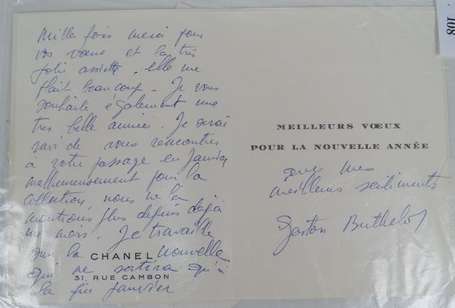 Mille fois merci pour
vos vœux et la très
jolie assiette, elle me
plait beaucoup. Je vous
souhaite également une
très belle année. Je serai
ravi de vous rencontrer
à votre passage en Janvier
malheureusement pour la
collection, nous ne la
montrons plus depuis déjà
un mois. Je travaille
sur la nouvelle
CHANEL
qui ne sortira qu'à
31, RUE CAMBON
la fin janvier
MEILLEURS VŒUX
POUR LA NOUVELLE ANNÉE
avec mes
meilleurs sentiments
Gaston Berthelot
108